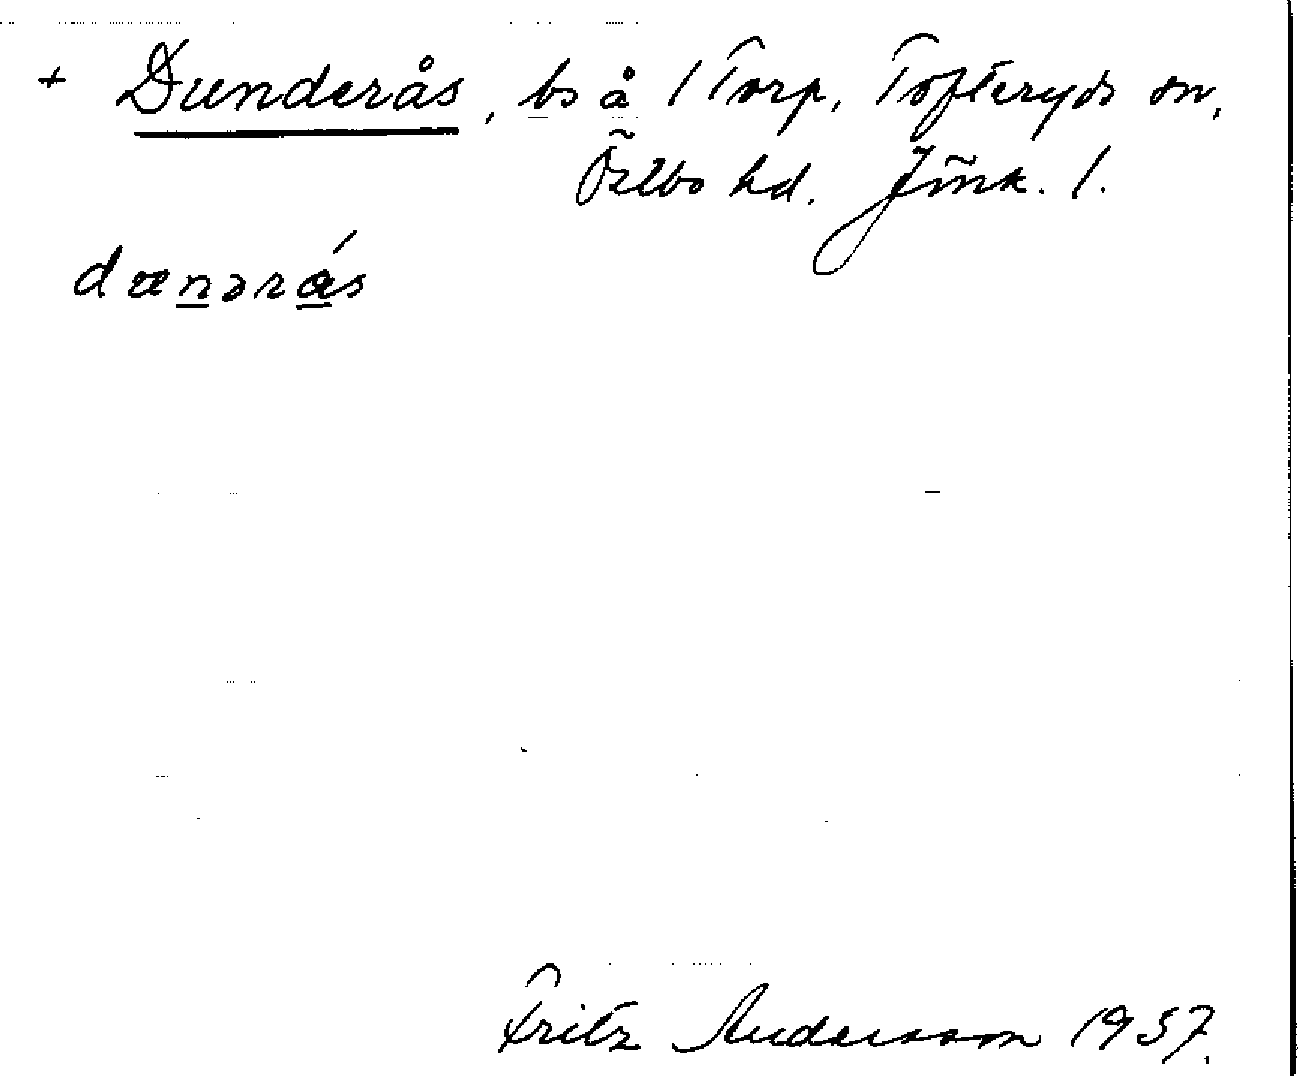 + Dunderås, bs å 1 Torp, Tofteryds sn,
Östbo hd. Jönk. l.
dœnərás
Fritz Andersson 1957.